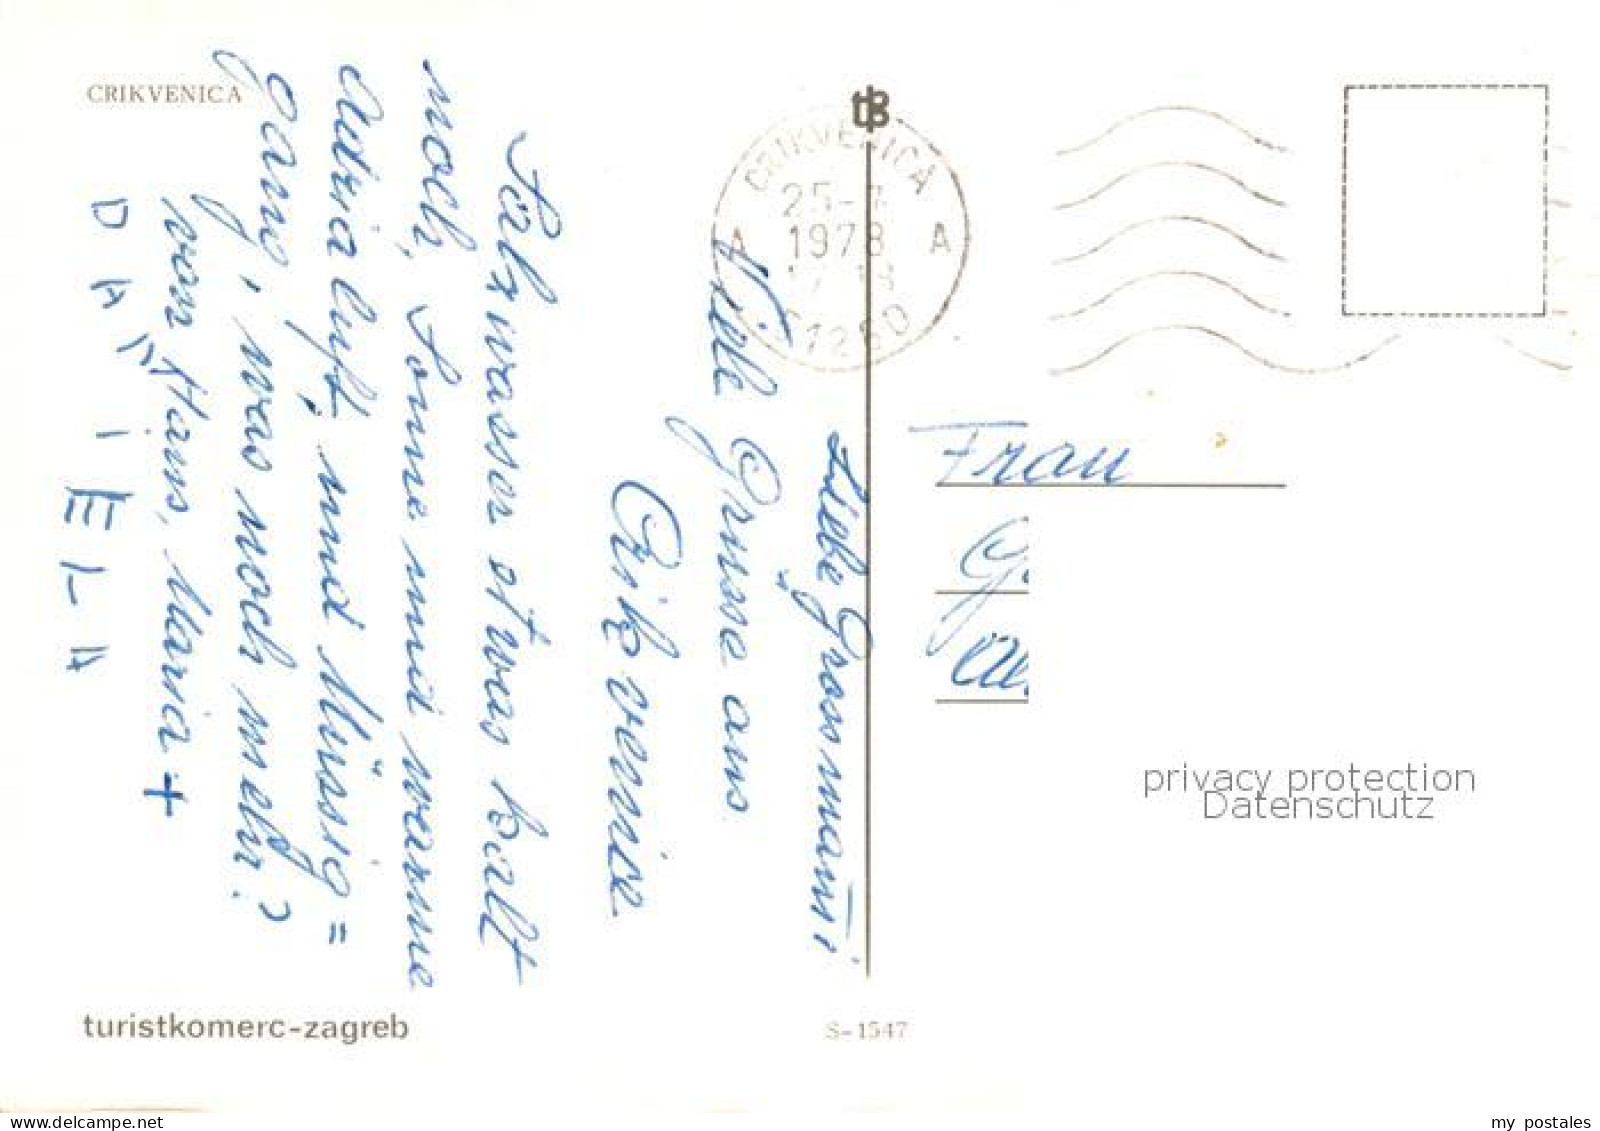 CRIKVENICA
Liebe Grossmami
Viele Grüsse aus
Crikvenica
Salzwasser etwas kalt
noch, Sonne und warme
Adria luft, und Müssig=
gang, was noch mehr?
von Hans, Maria +
DANIELA
CRIKVENICA
25-
1978
A A
51260
Frau
G.
privacy protection
Datenschutz
turistkomerc-zagreb
S-1547
www.delcampe.net
my_postales